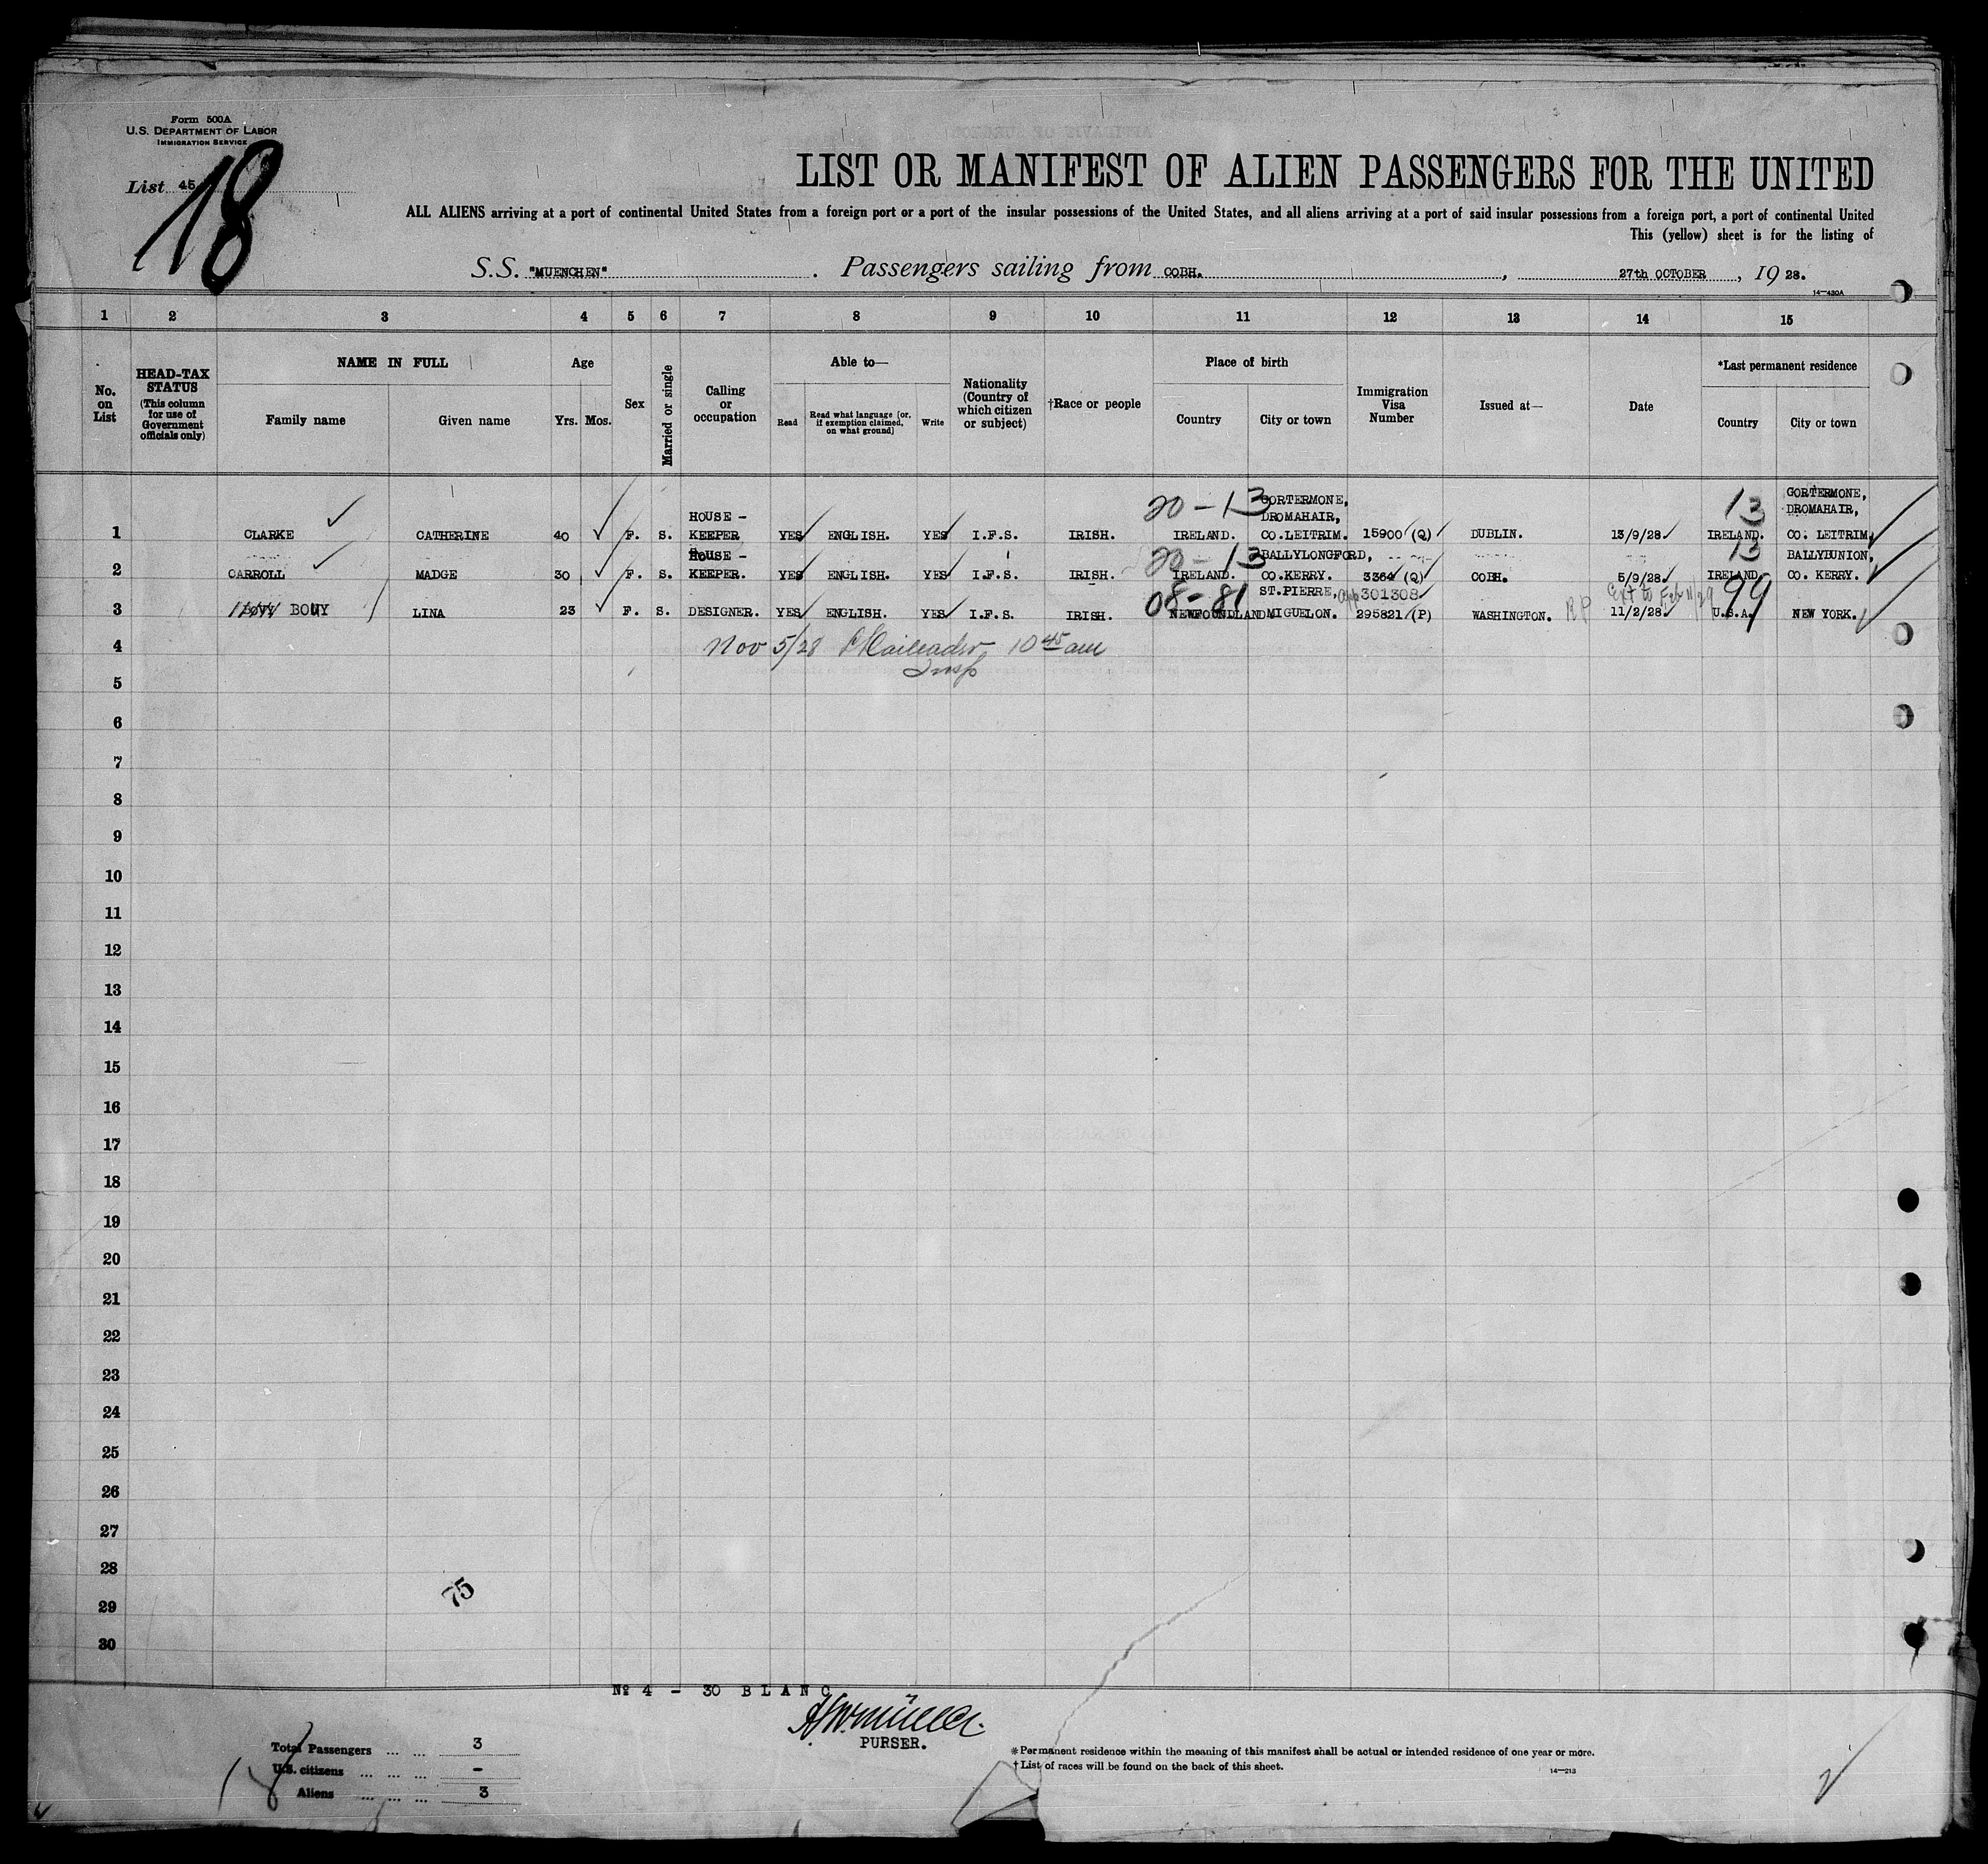 Form 500A
U.S. DEPARTMENT OF LABOR
IMMIGRATION SERVICE
List 45
18
LIST OR MANIFEST OF ALIEN PASSENGERS FOR THE UNITED
ALL ALIENS arriving at a port of continental United States from a foreign port or a port of the insular possessions of the United States, and all aliens arriving at a port of said insular possessions from a foreign port, a port of continental United
This (yellow) sheet is for the listing of
S.S. "MUENCHEN" . Passengers sailing from COBH. , 27th OCTOBER , 19 28.
14—430A
1 2 3 4 5 6 7 8 9 10 11 12 13 14 15
No. on List
HEAD-TAX STATUS (This column for use of Government officials only)
NAME IN FULL
Family name Given name
Age
Yrs. Mos.
Sex
Married or single
Calling or occupation
Able to—
Read Read what language (or, if exemption claimed, on what ground) Write
Nationality (Country of which citizen or subject)
†Race or people
Place of birth
Country City or town
Immigration Visa Number
Issued at—
Date
*Last permanent residence
Country City or town
20-13 GORTERMONE, 13 GORTERMONE,
HOUSE - DROMAHAIR, DROMAHAIR,
1 CLARKE CATHERINE 40 F. S. KEEPER YES ENGLISH. YES I.F.S. IRISH. IRELAND. CO.LEITRIM. 15900 (Q) DUBLIN. 13/9/28 IRELAND. CO. LEITRIM.
HOUSE - 20-13 BALLYLONGFORD, 13 BALLYBUNION,
2 CARROLL MADGE 30 F. S. KEEPER. YES ENGLISH. YES I.F.S. IRISH. IRELAND. CO.KERRY. 3364 (Q) COBH. 5/9/28. IRELAND. CO. KERRY.
08-81 ST.PIERRE, App 301308 Ext to Feb 11/29 99
3 BOUY LINA 23 F. S. DESIGNER. YES ENGLISH. YES I.F.S. IRISH. NEWFOUNDLAND MIGUELON. 295821 (P) WASHINGTON. RP 11/2/28. U.S.A. NEW YORK.
4 Nov 5/28 10 45 am
Insp
5
6
7
8
9
10
11
12
13
14
15
16
17
18
19
20
21
22
23
24
25
26
27
28
75
29
30
Nº 4 - 30 B L A N C
PURSER.
Total Passengers ... ... 3
U.S. citizens ... ... ... -
Aliens ... ... ... 3
18
*Permanent residence within the meaning of this manifest shall be actual or intended residence of one year or more.
†List of races will be found on the back of this sheet.
14—213